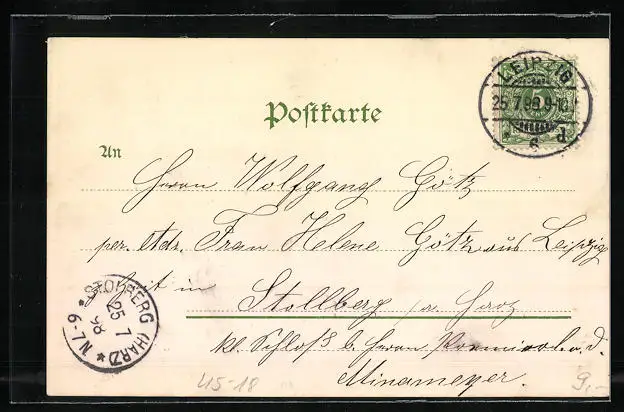 Postkarte
An
Herrn Wolfgang Götz
per. Adr. Frau Helene Götz aus Leipzig
zeit in
Stollberg a. Harz
kl. Schloß b. Herrn
Minameyer.
LEIPZIG
25.7.98.9-10V
6 d.
5
STOLBERG (HARZ)
25 7
98
* 6-7N *
45-18
9,-